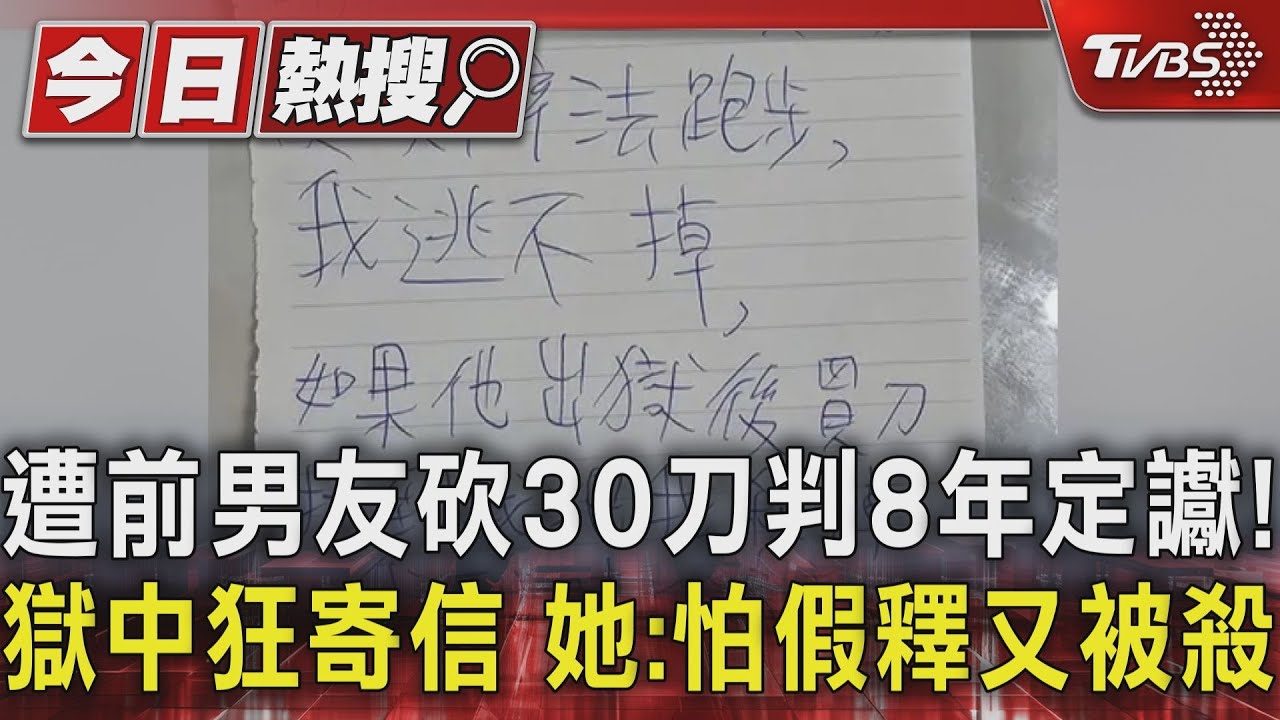 今日熱搜
TVBS
法跑步,
我逃不掉,
如果他出獄後買刀
遭前男友砍30刀判8年定讞!
獄中狂寄信 她:怕假釋又被殺